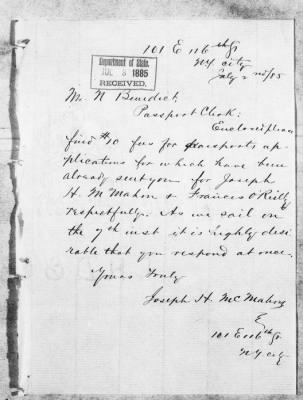 101 E 116th St
N.Y. city
July 2nd/85
Department of State,
JUL 3 1885
RECEIVED.
Mr. N Benedict,
Passport Clerk:
Enclosed please
find $10 fees for passports ap-
plications for which have been
already sent you for Joseph
H. McMahon & Frances O'Reilly
respectfully. As we sail on
the 9th inst it is highly desi-
rable that you respond at once.
Yours truly
Joseph H. McMahon
101 E 116th St
N.Y. city